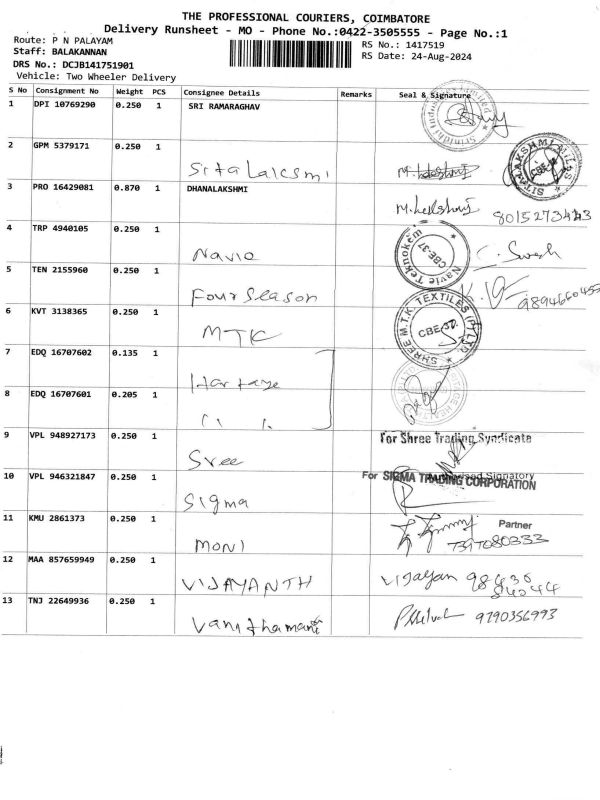 THE PROFESSIONAL COURIERS, COIMBATORE
Delivery Runsheet - MO - Phone No.:0422-3505555 - Page No.:1
Route: P N PALAYAM
RS No.: 1417519
Staff: BALAKANNAN
RS Date: 24-Aug-2024
DRS No.: DCJB141751901
Vehicle: Two Wheeler Delivery
S No Consignment No Weight PCS Consignee Details Remarks Seal & Signature
1 DPI 10769290 0.250 1 SRI RAMARAGHAV
2 GPM 5379171 0.250 1
Sitalakshmi
SITALAKSHMI MILLS
CBE-
3 PRO 16429081 0.870 1 DHANALAKSHMI
4 TRP 4940105 0.250 1
Navie
Navie Teknokem
CBE-37
5 TEN 2155960 0.250 1
Four Season
9894660455
6 KVT 3138365 0.250 1
MTK
SHREE M.T.K. TEXTILES (P) LTD.
CBE-37.
7 EDQ 16707602 0.135 1
8 EDQ 16707601 0.205 1
9 VPL 948927173 0.250 1
Sree
For Shree Trading Syndicate
Authorised Signatory
10 VPL 946321847 0.250 1
Sigma
For SIGMA TRADING CORPORATION
Partner
11 KMU 2861373 0.250 1
MONI
12 MAA 857659949 0.250 1
VIJAYANTH
Vijayan 98430
13 TNJ 22649936 0.250 1
Vanithamani
9790356993